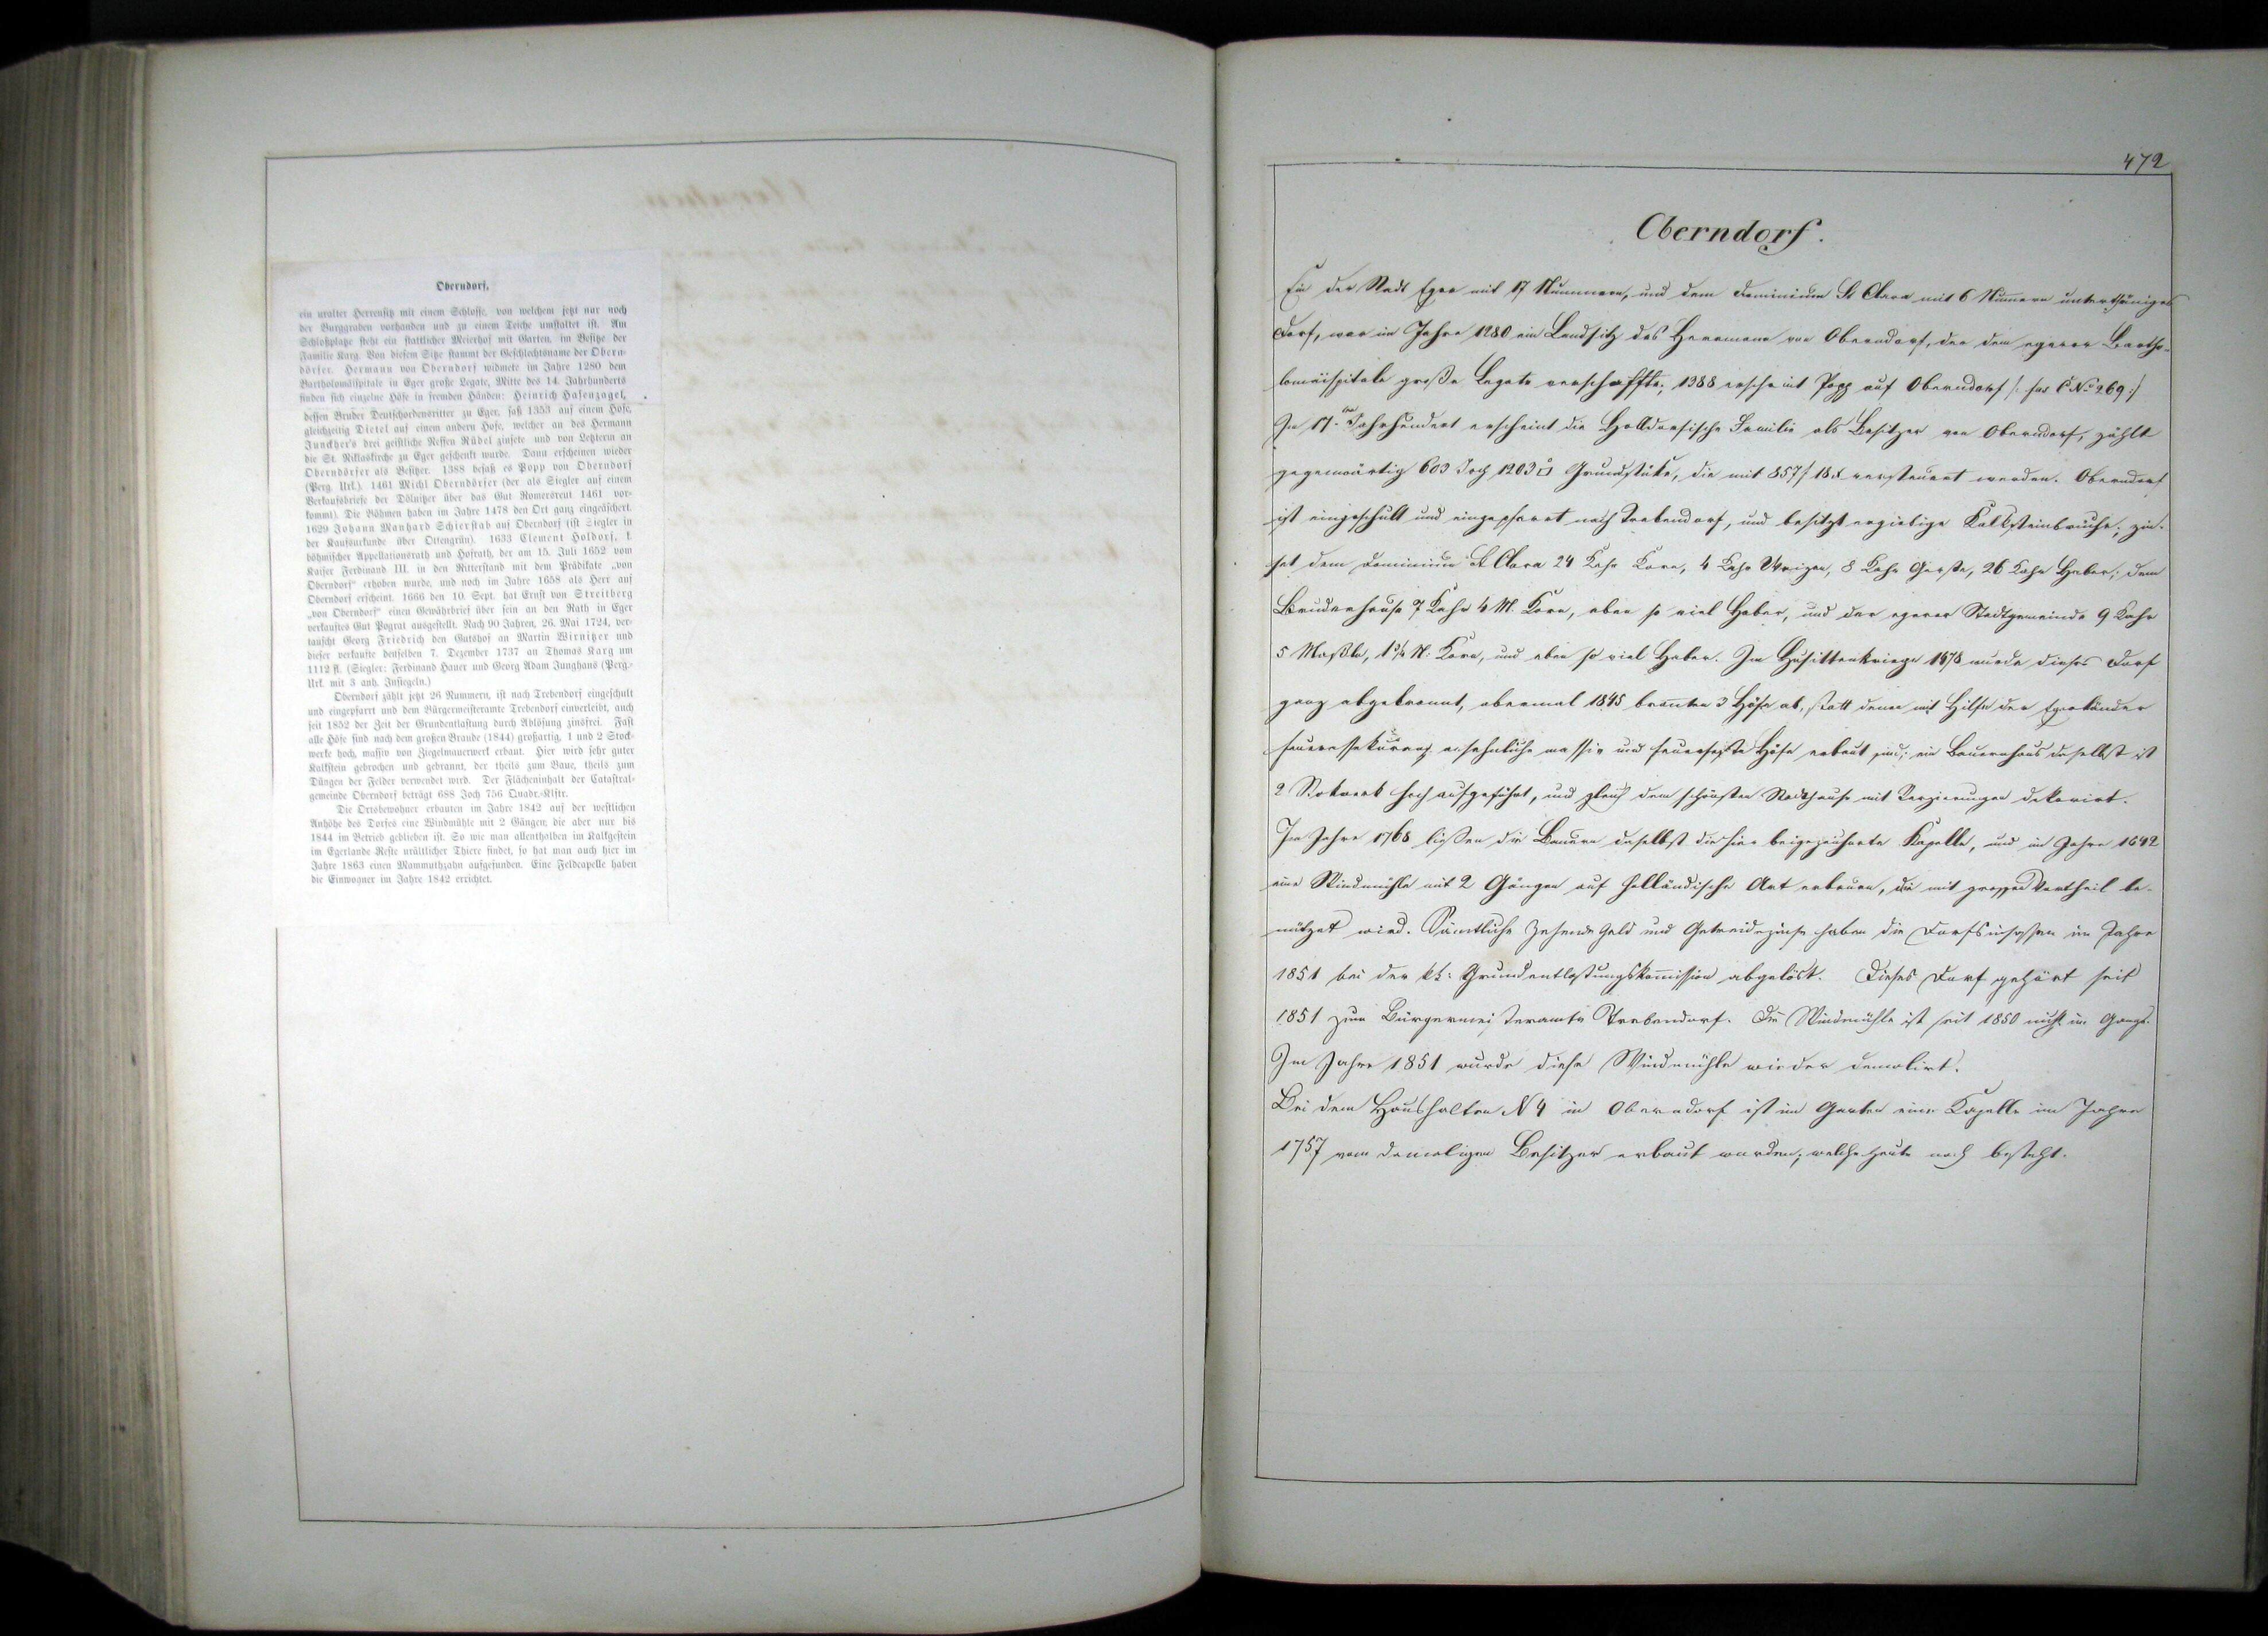 Oberndorf.
ein uralter Herrensitz mit einem Schlosse, von welchem jetzt nur noch
der Burggraben vorhanden und zu einem Teiche umstaltet ist. Am
Schloßplatze steht ein stattlicher Meierhof mit Garten, im Besitze der
Familie Karg. Von diesem Sitze stammt der Geschlechtsname der Obern-
dörfer. Hermann von Oberndorf widmete im Jahre 1280 dem
Bartholomäispitale in Eger große Legate, Mitte des 14. Jahrhunderts
finden sich einzelne Höfe in fremden Händen: Heinrich Hasenzagel,
dessen Bruder Deutschordensritter zu Eger, saß 1353 auf einem Hofe,
gleichzeitig Dietel auf einem andern Hofe, welcher an des Hermann
Junckher's drei geistliche Neffen Rüdel zinsete und von Letztern an
die St. Niklaskirche zu Eger geschenkt wurde. Dann erscheinen wieder
Oberndörfer als Besitzer. 1388 besaß es Popp von Oberndorf
(Perg. Urk.). 1461 Michl Oberndörfer (der als Siegler auf einem
Verkaufsbriefe der Dölnitzer über das Gut Romersreut 1461 vor-
kommt). Die Böhmen haben im Jahre 1478 den Ort ganz eingeäschert.
1629 Johann Manhard Schierstab auf Oberndorf (ist Siegler in
der Kaufsurkunde über Ottengrün). 1633 Clement Holdorf, k.
böhmischer Appellationsrath und Hofrath, der am 15. Juli 1652 vom
Kaiser Ferdinand III. in den Ritterstand mit dem Prädikate „von
Oberndorf“ erhoben wurde, und noch im Jahre 1658 als Herr auf
Oberndorf erscheint. 1666 den 10. Sept. hat Ernst von Streitberg
„von Oberndorf“ einen Gewährbrief über sein an den Rath in Eger
verkauftes Gut Pograt ausgestellt. Nach 90 Jahren, 26. Mai 1724, ver-
tauscht Georg Friedrich den Gutshof an Martin Wirnitzer und
dieser verkaufte denselben 7. Dezember 1737 an Thomas Karg um
1112 fl. (Siegler: Ferdinand Hauer und Georg Adam Junghans (Perg.-
Urk. mit 3 anh. Insiegeln.)
Oberndorf zählt jetzt 26 Nummern, ist nach Trebendorf eingeschult
und eingepfarrt und dem Bürgermeisteramte Trebendorf einverleibt, auch
seit 1852 der Zeit der Grundentlastung durch Ablösung zinsfrei. Fast
alle Höfe sind nach dem großen Brande (1844) großartig, 1 und 2 Stock-
werke hoch, massiv von Ziegelmauerwerk erbaut. Hier wird sehr guter
Kalkstein gebrochen und gebrannt, der theils zum Baue, theils zum
Düngen der Felder verwendet wird. Der Flächeninhalt der Catastral-
gemeinde Oberndorf beträgt 688 Joch 756 Quadr.-Klftr.
Die Ortsbewohner erbauten im Jahre 1842 auf der westlichen
Anhöhe des Dorfes eine Windmühle mit 2 Gängen, die aber nur bis
1844 im Betrieb geblieben ist. So wie man allenthalben im Kalkgestein
im Egerlande Reste urältlicher Thiere findet, so hat man auch hier im
Jahre 1863 einen Mammuthzahn aufgefunden. Eine Feldcapelle haben
die Einwogner im Jahre 1842 errichtet.
472
Oberndorf.
Ein der Stadt Eger mit 17 Nummern, und dem Dominium St Clara mit 6 Numern unterthäniges
Dorf, war im Jahre 1280 ein Landsitz des Herrmann von Oberndorf, der dem egerer Bartho-
lomäispitale große Legate verschaffte; 1388 erscheint Popp auf Oberndorf /: N° 269 :/
Im 17. Jahrhundert erscheint die Holldorfische Familie als Besitzer von Oberndorf, zählt
gegenwärtig 603 Joch 1203 □ Grundstüke, die mit 857 f 18 x versteuert werden. Oberndorf
ist eingeschult und eingepfarrt nach Trebendorf, und besitzt ergiebige Kalksteinbrüche; zin-
set dem Dominium St Clara 24 Kahr Korn, 4 Kahr Weizen, 8 Kahr Gerste, 26 Kahr Haber; dem
Bruderhause 7 Kahr 4 M. Korn, eben so viel Haber, und der egerer Stadtgemeinde 9 Kahr
5 Maßle, 1 3/4 N: Korn, und eben so viel Haber. Im Husittenkriege 1478 wurde dieses Dorf
ganz abgebrannt, abermal 1845 branten 3 Höfe ab, statt denen mit Hilfe der Egerländer
Feuerassekuranz ansehnliche massiv und feuerfeste Höfe erbaut sind; ein Bauernhaus daselbst ist
2 Stokwerk hoch aufgeführt, und gleich dem schönsten Stadthause mit Verzierungen dekorirt.
Im Jahre 1768 ließen die Bauern daselbst die hier beigezeichnete Kapelle, und im Jahre 1642
eine Windmühle mit 2 Gängen auf holländische Art erbauen, die mit grossen Vortheil be-
nützet wird. Sämtliche Zehende Geld und Getreidezinse haben die Dorfsinsassen im Jahre
1851 bei der kk: Grundentlastungskomission abgelöst. Dieses Dorf gehört seit
1851 zum Bürgermeisteramte Trebendorf. Die Windmühle ist seit 1850 nicht im Gange.
Im Jahre 1851 wurde diese Windmühle wieder demolirt.
Bei dem Haushalten N 4 in Oberndorf ist im Garten eine Kapelle im Jahre
1757 vom damaligen Besitzer erbaut worden; welche heute noch besteht.